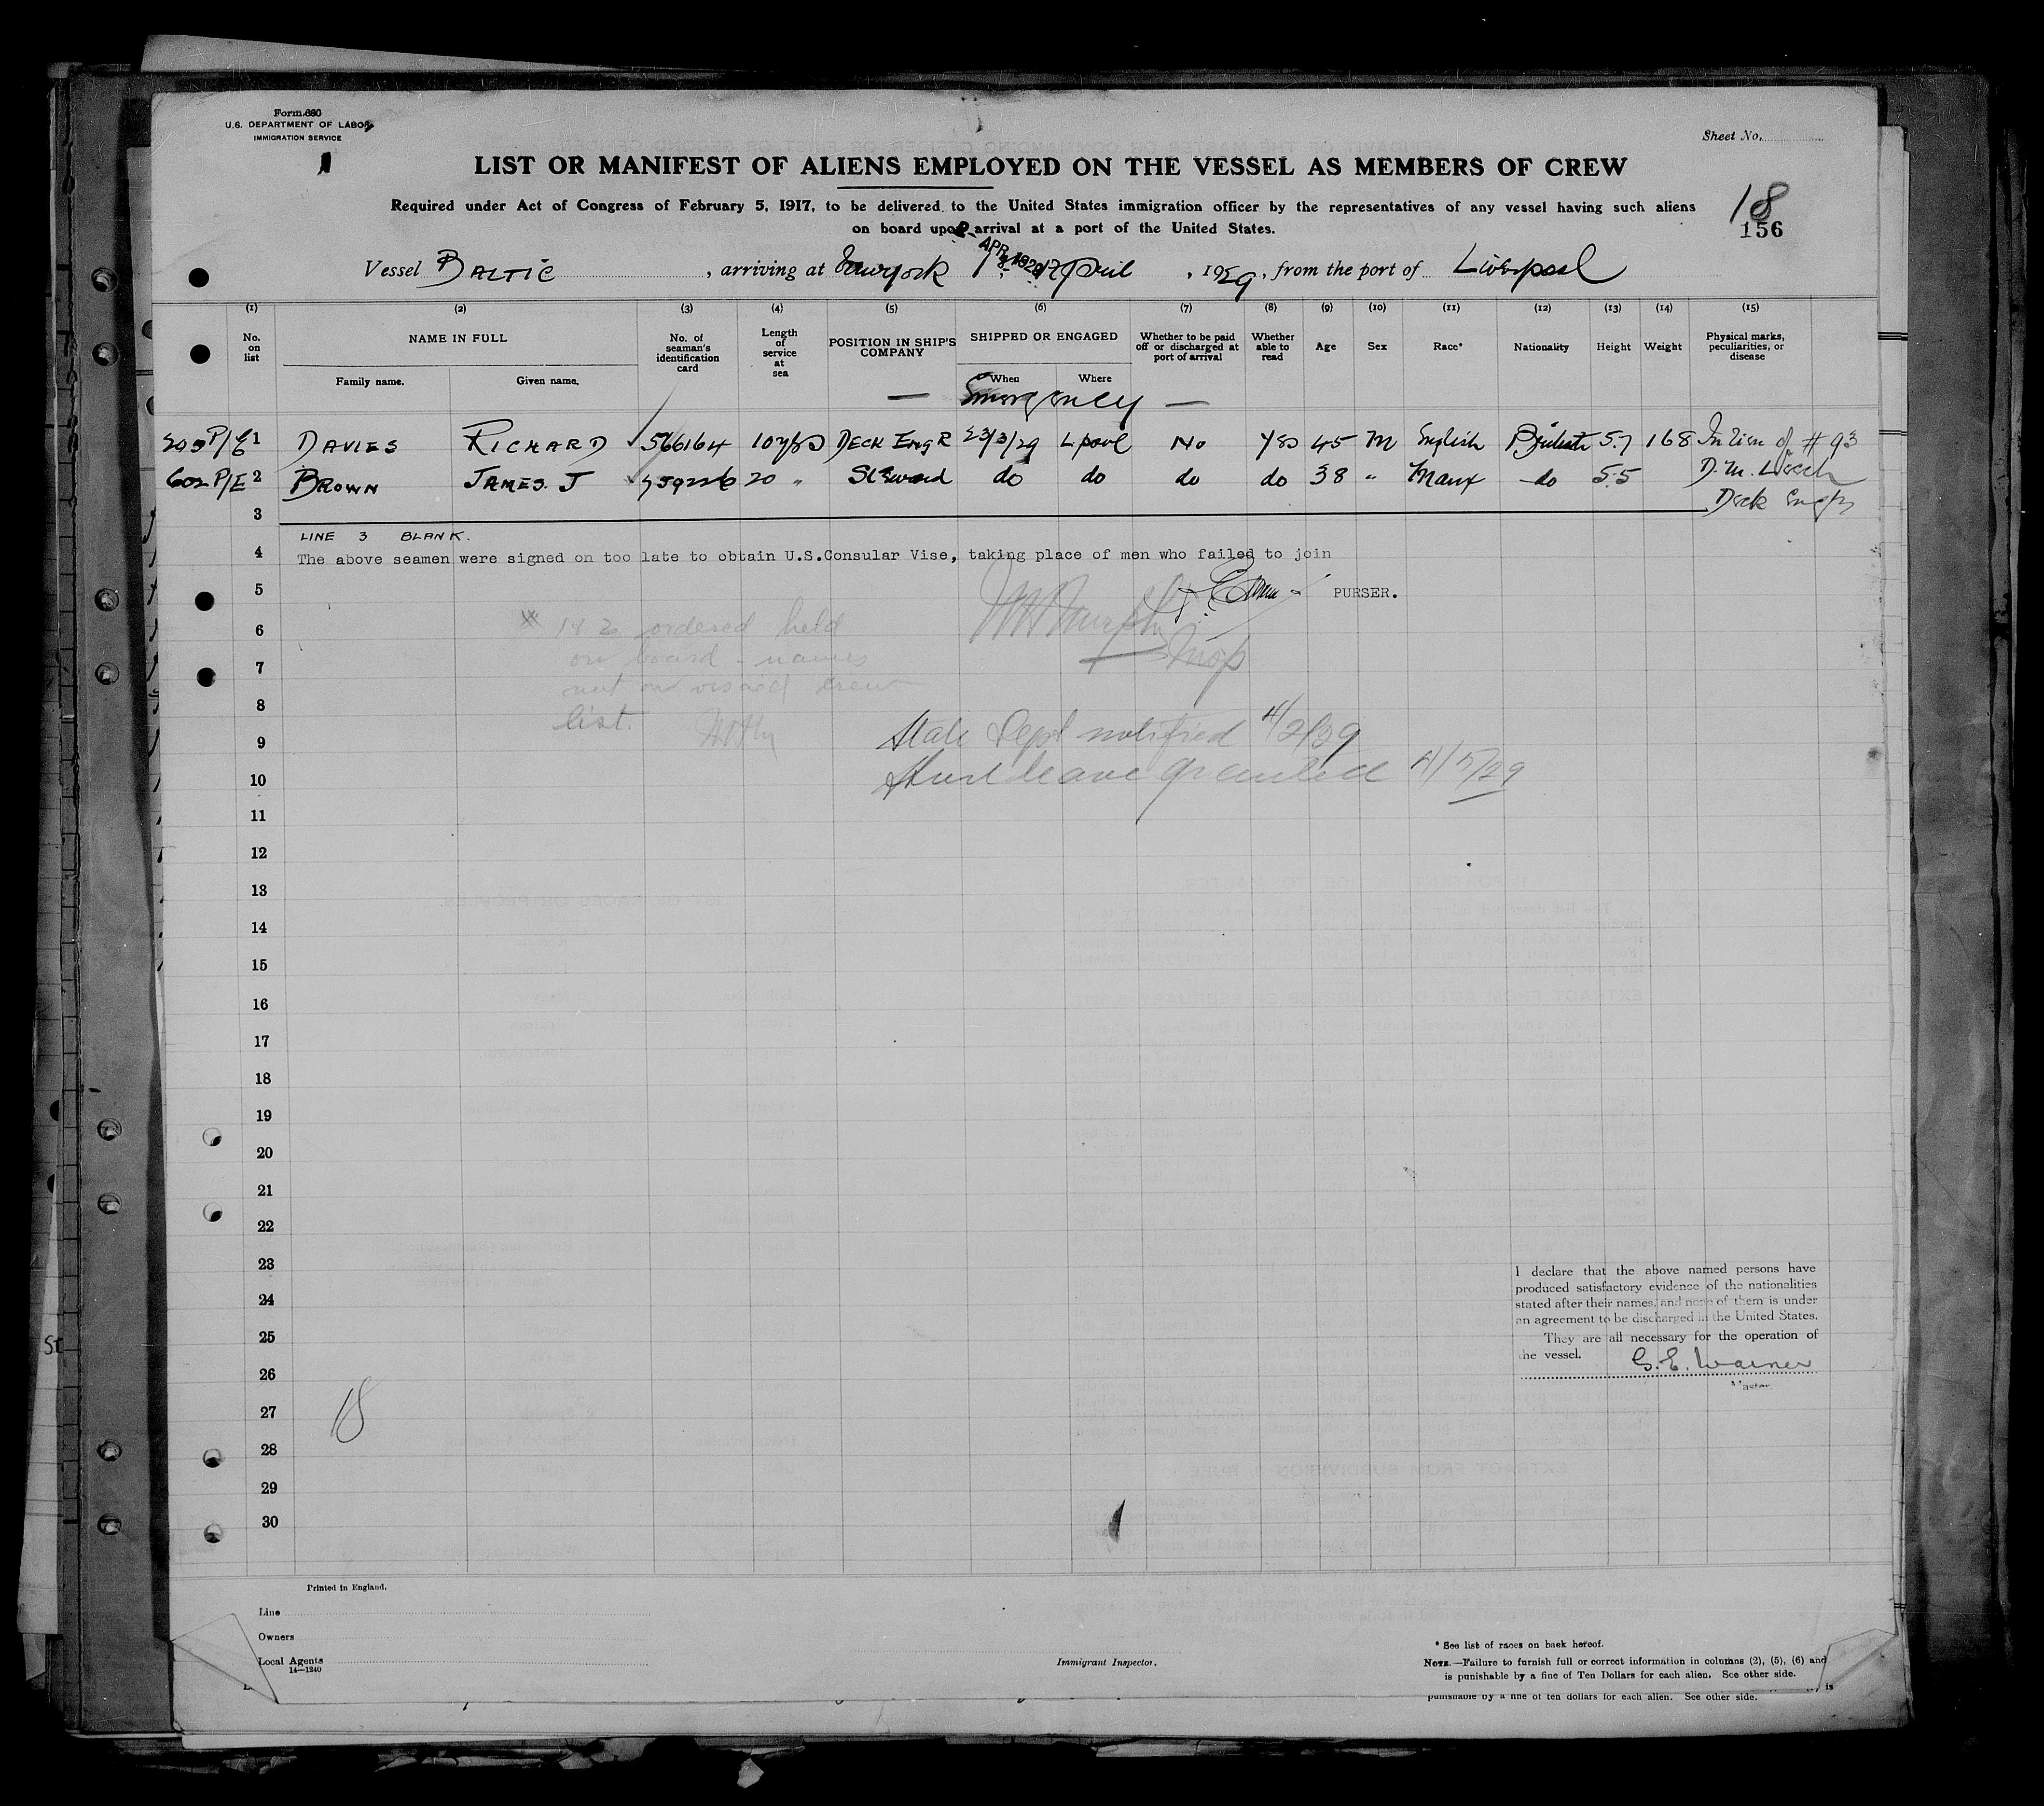 Form 680
U.S. DEPARTMENT OF LABOR
IMMIGRATION SERVICE
Sheet No.
LIST OR MANIFEST OF ALIENS EMPLOYED ON THE VESSEL AS MEMBERS OF CREW
Required under Act of Congress of February 5, 1917, to be delivered to the United States immigration officer by the representatives of any vessel having such aliens
on board upon arrival at a port of the United States.
18
156
Vessel BALTIC, arriving at New York April, 1929, from the port of Liverpool
(1) (2) (3) (4) (5) (6) (7) (8) (9) (10) (11) (12) (13) (14) (15)
No. on list
NAME IN FULL
Family name. Given name.
No. of seaman's identification card
Length of service at sea
POSITION IN SHIP'S COMPANY
SHIPPED OR ENGAGED
When Where
Whether to be paid off or discharged at port of arrival
Whether able to read
Age
Sex
Race*
Nationality
Height
Weight
Physical marks, peculiarities, or disease
— Emergency —
P/E 1 DAVIES RICHARD 566164 10 yrs DECK ENGR 23/3/29 L'pool No yes 45 M English British 5.7 168 In lieu of # 93
602 P/E 2 BROWN JAMES. J 759226 20 " Steward do do do do 38 " Manx do 5.5 D. M. Leech
3 Deck Engr
LINE 3 BLANK.
4 The above seamen were signed on too late to obtain U.S.Consular Vise, taking place of men who failed to join
5 PURSER.
* 1 & 2 ordered held
6
on board - names
7 Insp
not on visaed crew
8
list.
9 State Dept notified 4/2/29
10 Shore leave granted 4/5/29
11
12
13
14
15
16
17
18
19
20
21
22
23
24
25
26
27
28
29
30
I declare that the above named persons have
produced satisfactory evidence of the nationalities
stated after their names, and none of them is under
an agreement to be discharged in the United States.
They are all necessary for the operation of
the vessel.
G. E. Warner
Master
18
Printed in England.
Line
Owners
Local Agents
14—1240
Immigrant Inspector.
* See list of races on back hereof.
NOTE.—Failure to furnish full or correct information in columns (2), (5), (6) and
is punishable by a fine of Ten Dollars for each alien. See other side.
punishable by a fine of ten dollars for each alien. See other side.